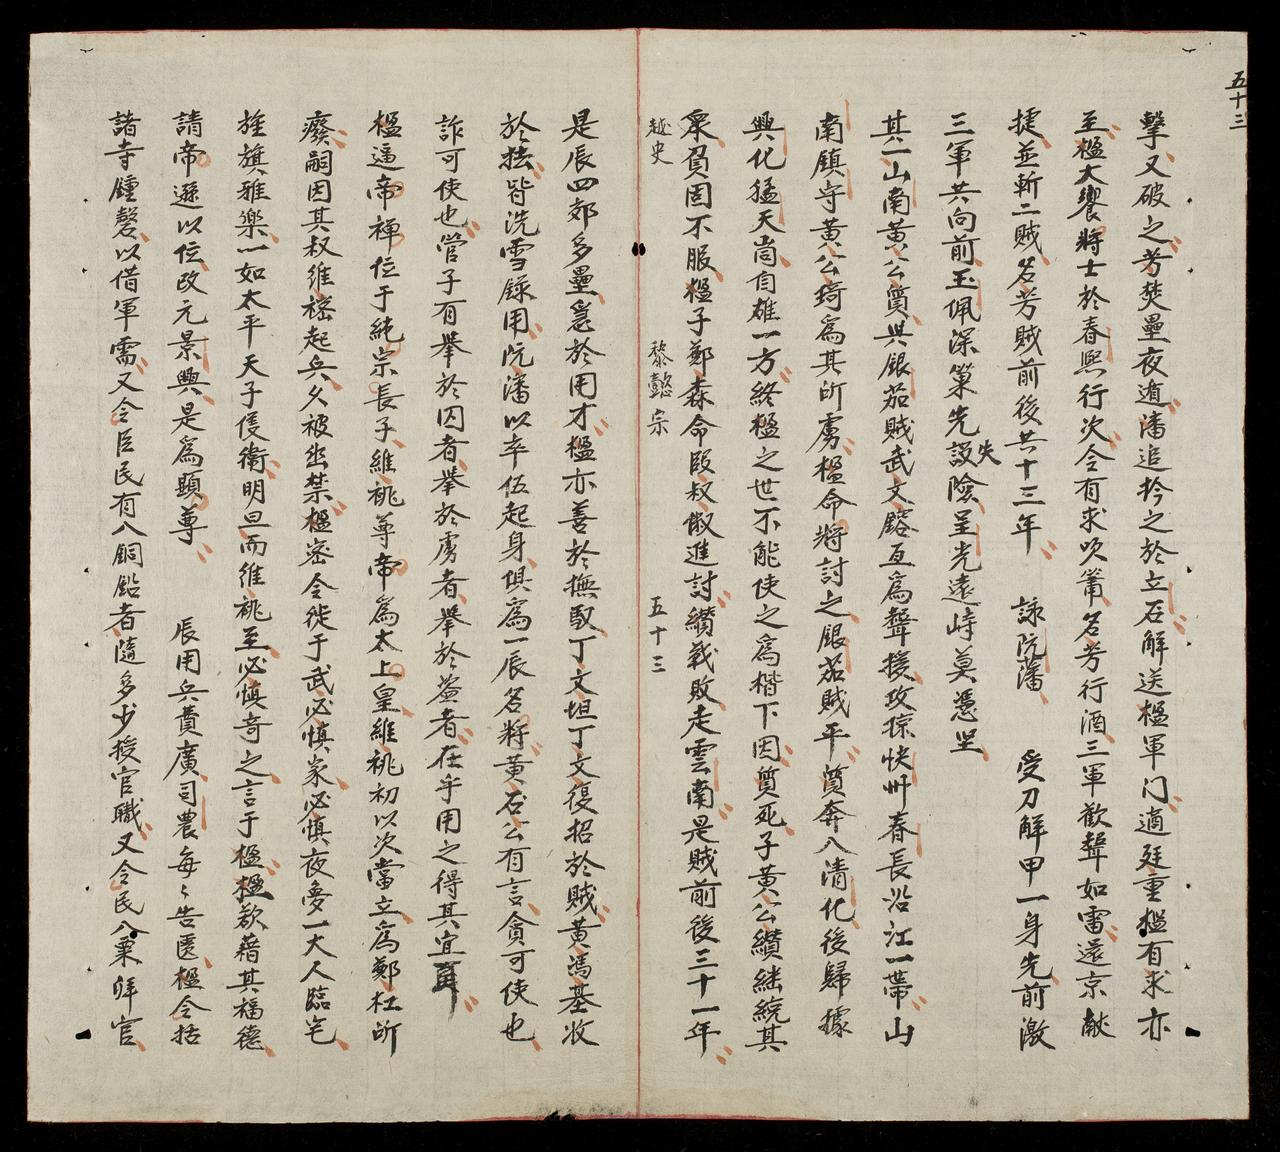 五十三
擊又破之芳焚壘夜遁潘追扵之於立石解送楹軍门適廷重楹有求亦
至楹大饗將士於春熙行次令有求吹簫名芳行酒三軍歡聲如雷還京献
捷並斬二賊名芳賊前後共十三年 詠阮藩 受刀解甲一身先前激
三軍共向前玉佩深策先設險失呈光遠峙莫憑坚
其一山南黃公質與銀茄賊武文鎔互爲聲援攻掠快州春長沿江一帶山
南鎮守黃公琦爲其所虜楹命將討之銀茄賊平質奔入清化後歸據
興化猛天尚自雄一方終楹之世不能使之爲楷下因質死子黃公纉継統其
衆負固不服楹子鄭森命段叔傲進討纉戰敗走雲南是賊前後三十一年
越史 黎懿宗 五十三
是辰四郊多壘急於用才楹亦善於撫馭丁文坦丁文復招於賊黃馮基收
於抾皆洗雪錄用阮潘以卒伍起身俱爲一辰名將黃石公有言貪可使也
詐可使也管子有舉於囚者舉於虜者舉於盗者在乎用之得其宜耳
楹逼帝禅位于純宗長子維祧尊帝爲太上皇維祧初以次當立爲鄭杠所
癈嗣因其叔維𥛭起兵久被幽禁楹密令徙于武必慎家必慎夜夢一大人臨宅
旌旗雅樂一如太平天子侵衛明旦而維祧至必慎奇之言于楹楹欲藉其福德
請帝遜以位改元景興是爲顕尊 辰用兵費廣司農每々告匮楹令括
諸寺鍾磬以借軍需又令臣民有入銅鉛者隨多少授官職又令民入粟拜官